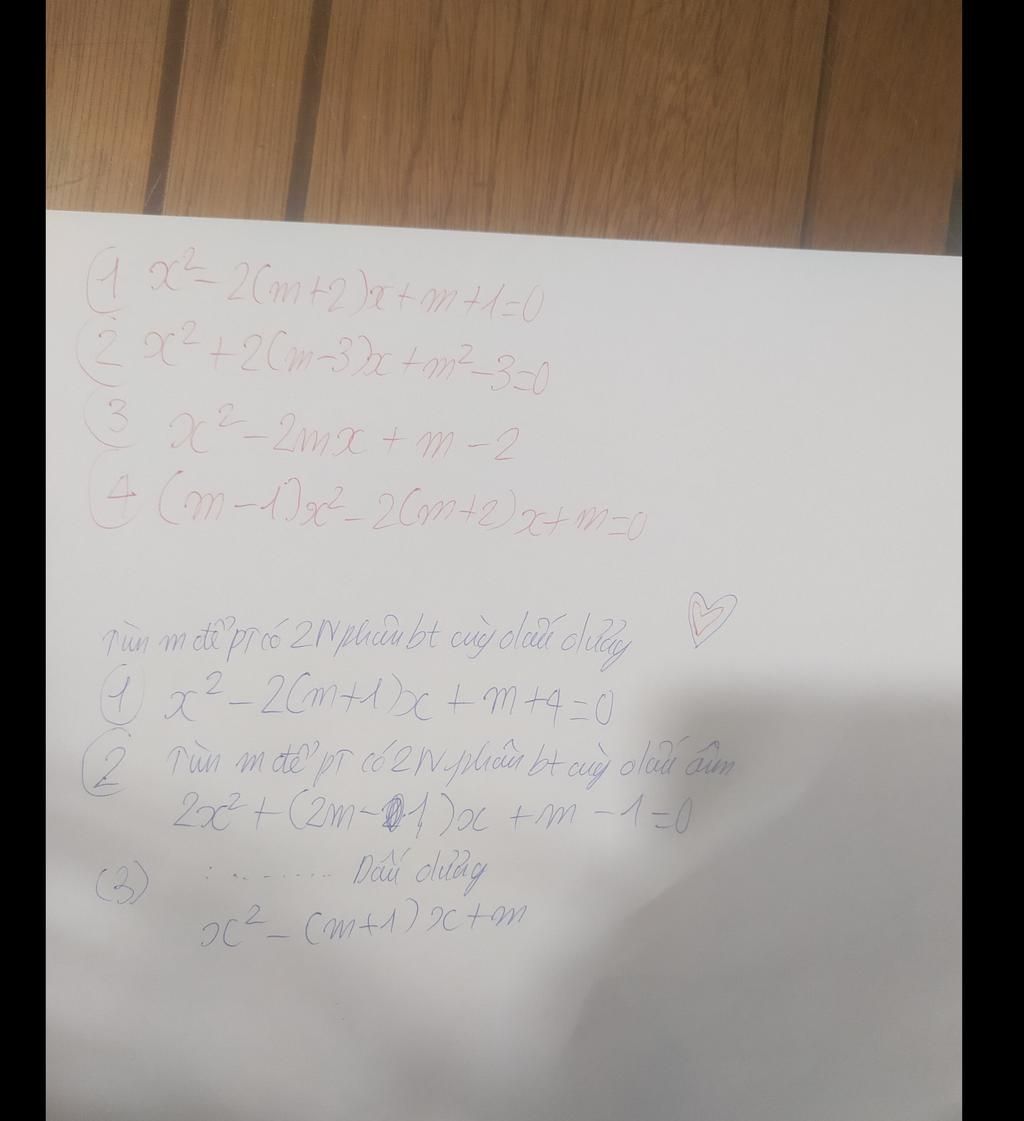 1 x² - 2(m+2)x + m + 1 = 0
2 x² + 2(m-3)x + m² - 3 = 0
3 x² - 2mx + m - 2
4 (m-1)x² - 2(m+2)x + m = 0
Tìm m để PT có 2N phân bt cùng dấu dương
1 x² - 2(m+1)x + m + 4 = 0
2 Tìm m để PT có 2N phân bt cùng dấu âm
2x² + (2m-1)x + m - 1 = 0
(3) : ........ Dấu dương
x² - (m+1)x + m